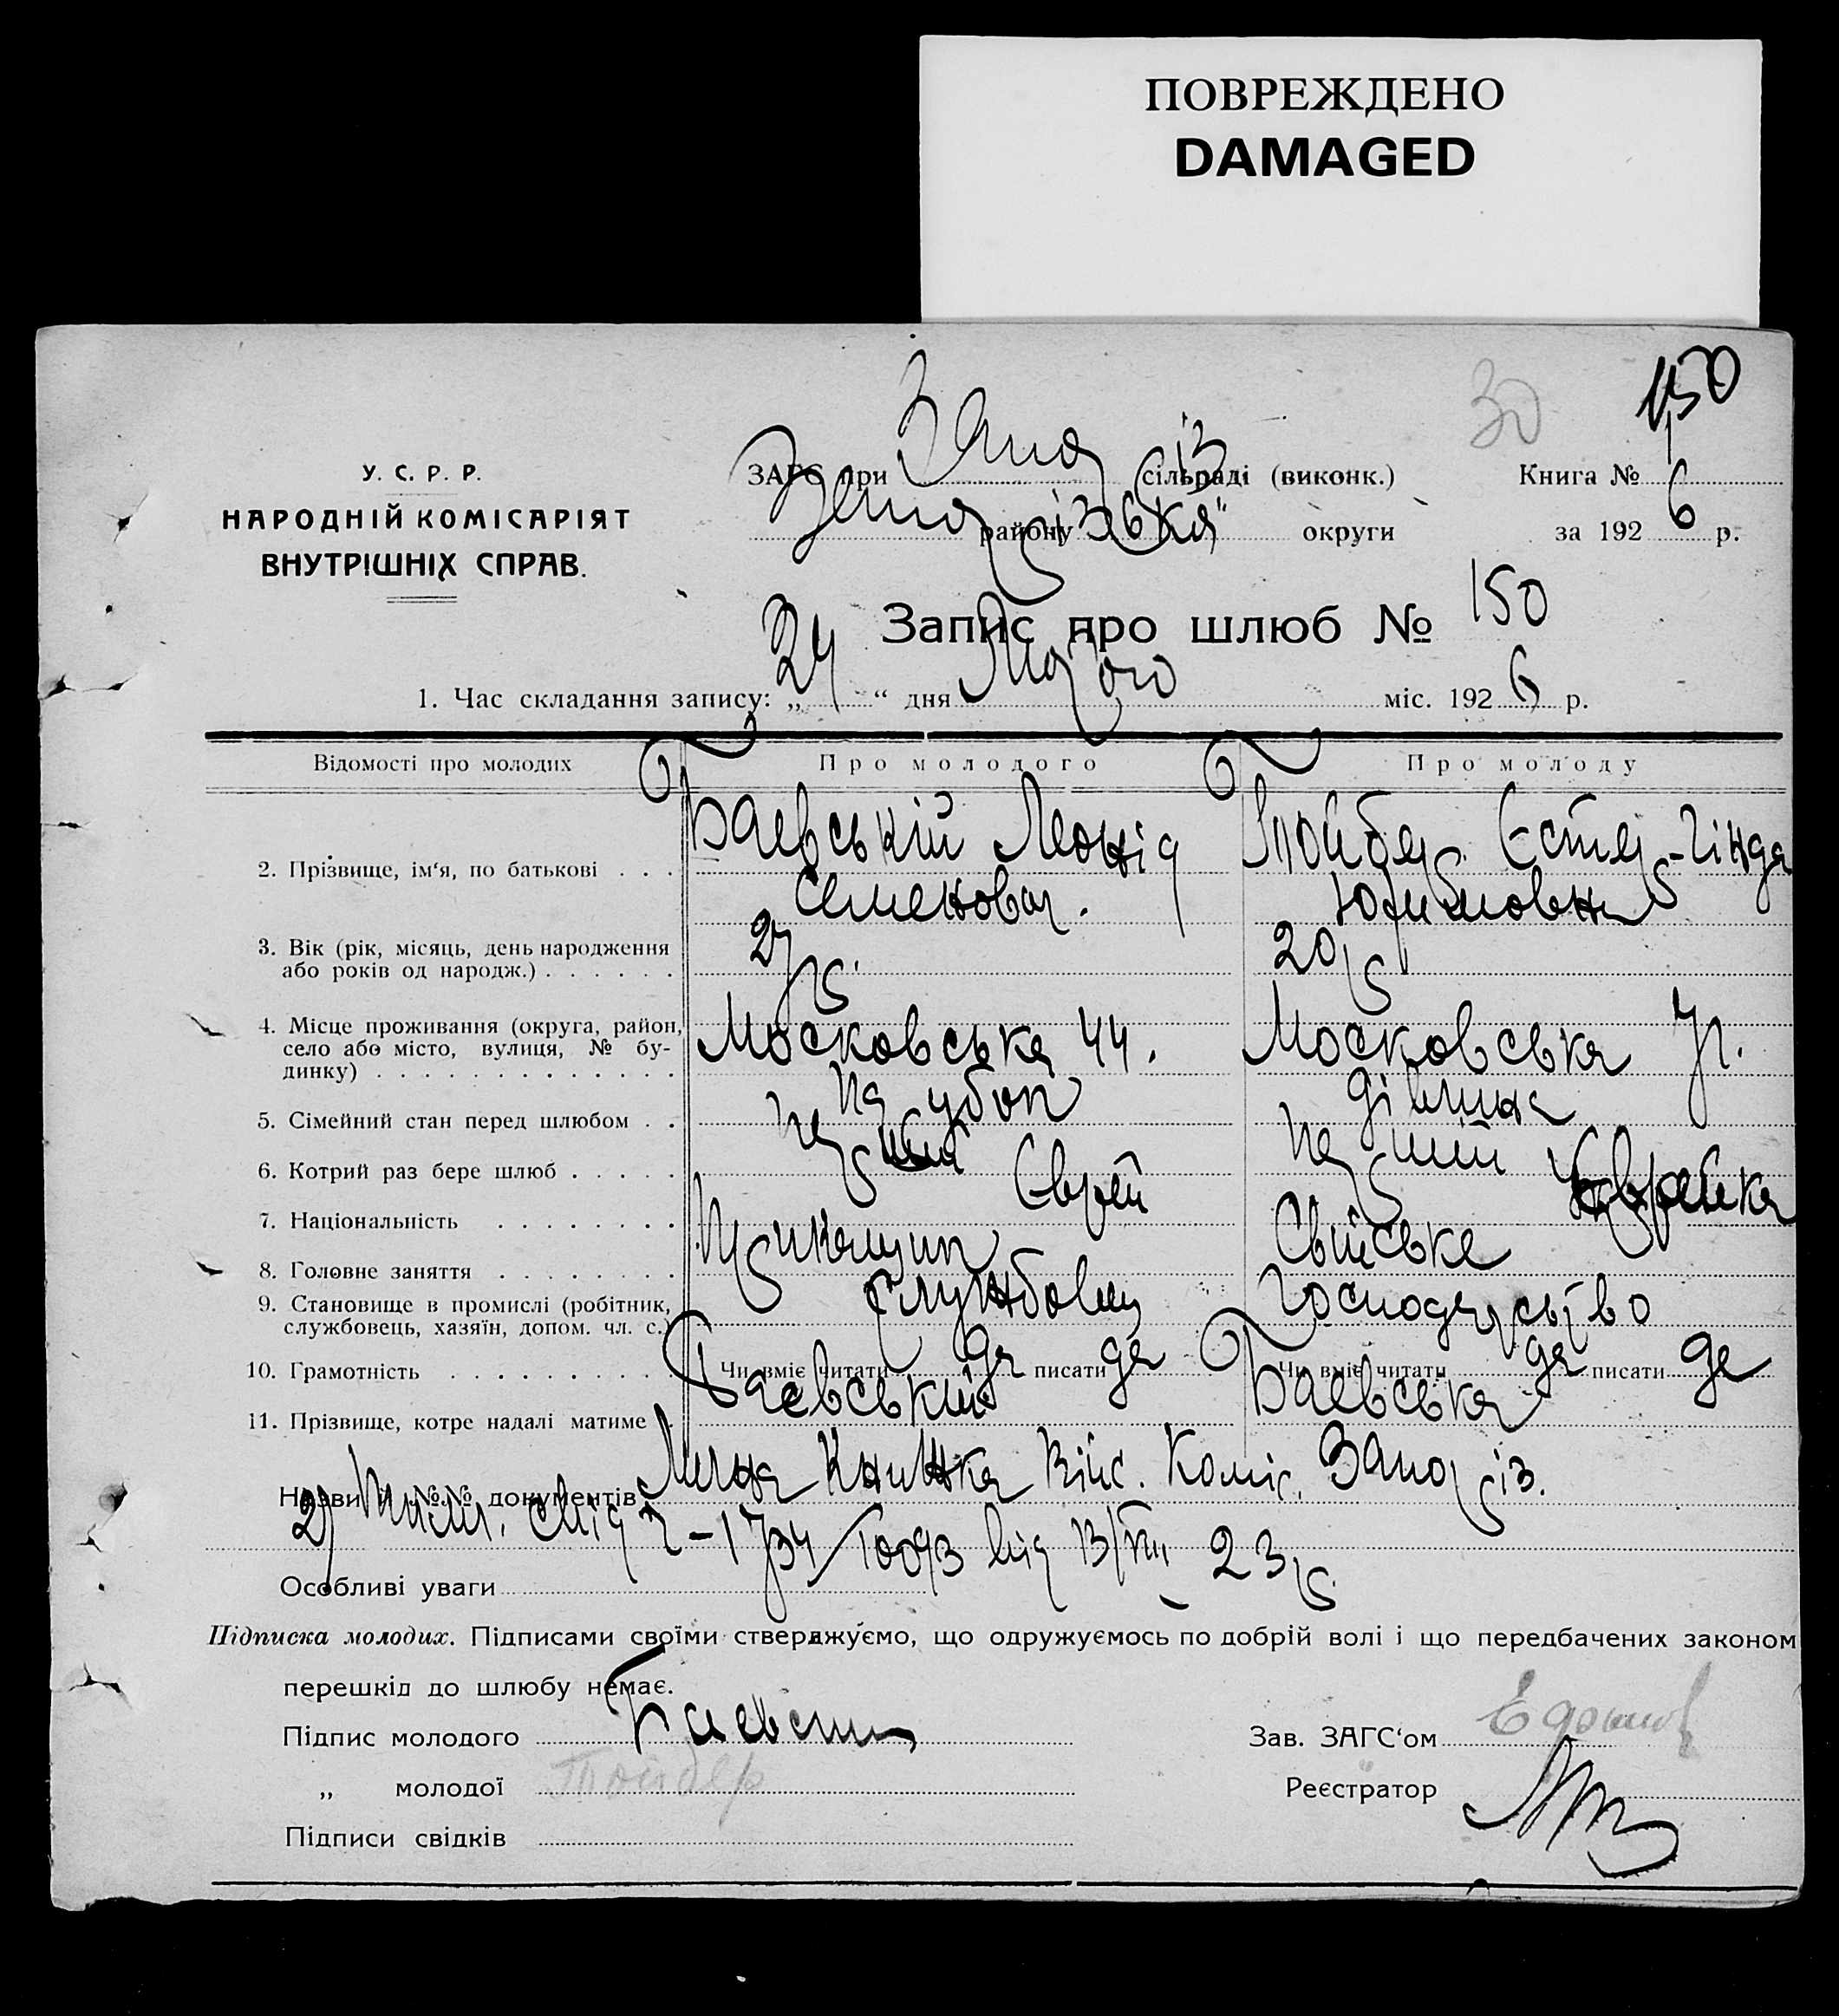 ПОВРЕЖДЕНО
DAMAGED
30 150
У. С. Р. Р.
НАРОДНІЙ КОМІСАРІЯТ
ВНУТРІШНІХ СПРАВ.
ЗАГС при Запоріз сільраді (виконк.) Книга № 1
району округи за 1926 р.
Запис про шлюб № 150
1. Час складання запису: „24“ дня Лютого міс. 1926 р.
Відомості про молодих Про молодого Про молоду
2. Прізвище, ім‘я, по батькові . . . Баєвський Леонід Тойбер Єстер-Гінда
Семенович.
3. Вік (рік, місяць, день народження 27 р. 20 р.
або років од народж.) . . . . . .
4. Місце проживання (округа, район, Московська 44. Московська 7
село або місто, вулиця, № бу-
динку) . . . . . . . . . . . . .
5. Сімейний стан перед шлюбом . . парубок дівчина
6. Котрий раз бере шлюб . . . . . перший перший
7. Національність . . . . . . . . Єврей Єврейка
8. Головне заняття . . . . . . . . Прикащик Свійське
9. Становище в промислі (робітник, службовець господарство
службовець, хазяїн, допом. чл. с.)
10. Грамотність . . . . . . . . . Чи вміє читати да писати да Чи вміє читати да писати да
11. Прізвище, котре надалі матиме . Баєвський Баєвська
Назви і №№ документів Лична Книжка Війс. Коміс. Запоріз.
2) від 13/VIII 23 р.
Особливі уваги
Підписка молодих. Підписами своїми стверджуємо, що одружуємось по добрій волі і що передбачених законом
перешкід до шлюбу немає.
Підпис молодого Баевский Зав. ЗАГС‘ом
„ молодої Тойбер Реєстратор
Підписи свідків